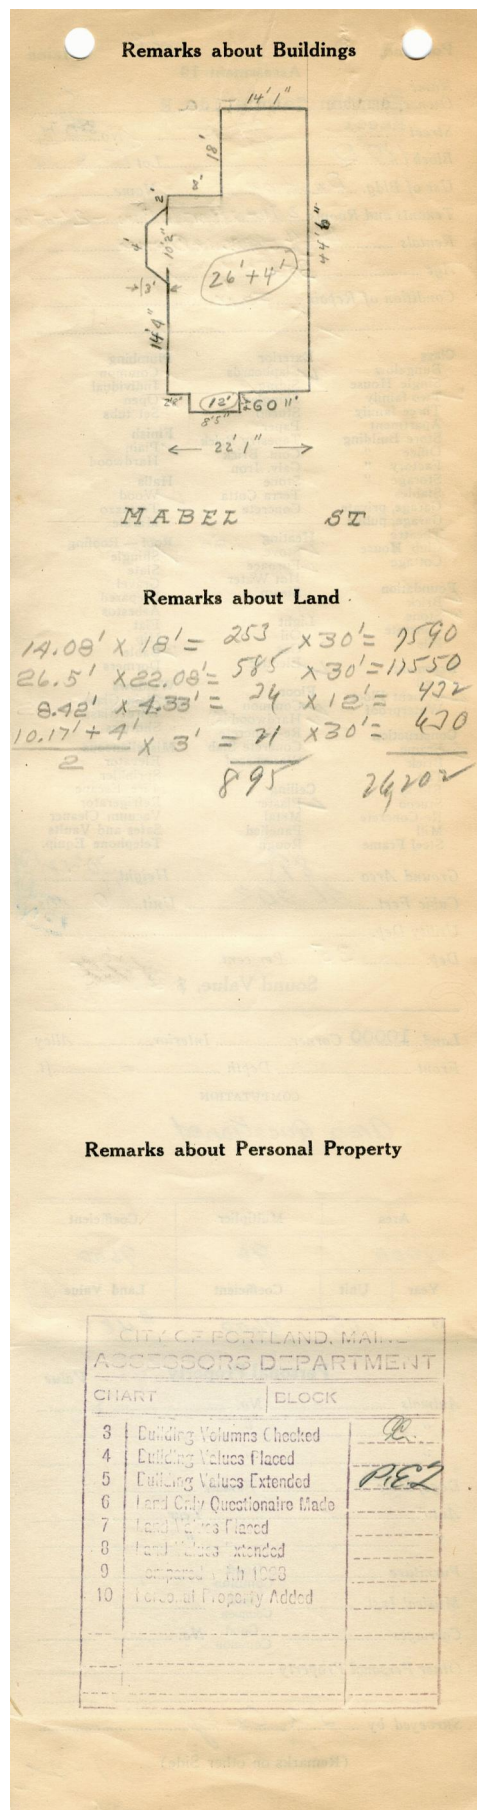 Remarks about Buildings
14' 1"
18'
8'
2'
4'
10' 2"
44' 9"
26' + 4'
3'
14' 4"
2' 8"
12'
8' 5"
22' 1"
MABEL ST
Remarks about Land
14.08' X 18' = 253 X 30' = 7590
26.5' X 22.08' = 585 X 30' = 17550
8.42' X 4.33' = 34 X 12' = 432
10.17' + 4' X 3' = 21 X 30' = 630
2
895 26,202
Remarks about Personal Property
CITY OF PORTLAND, MAINE
ASSESSORS DEPARTMENT
CHART BLOCK
3 Building Volumns Checked
4 Building Values Placed
5 Building Values Extended
6 Land Only Questionaire Made
7 Land Values Placed
8 Land Values Extended
9 Compared With
10 Personal Property Added